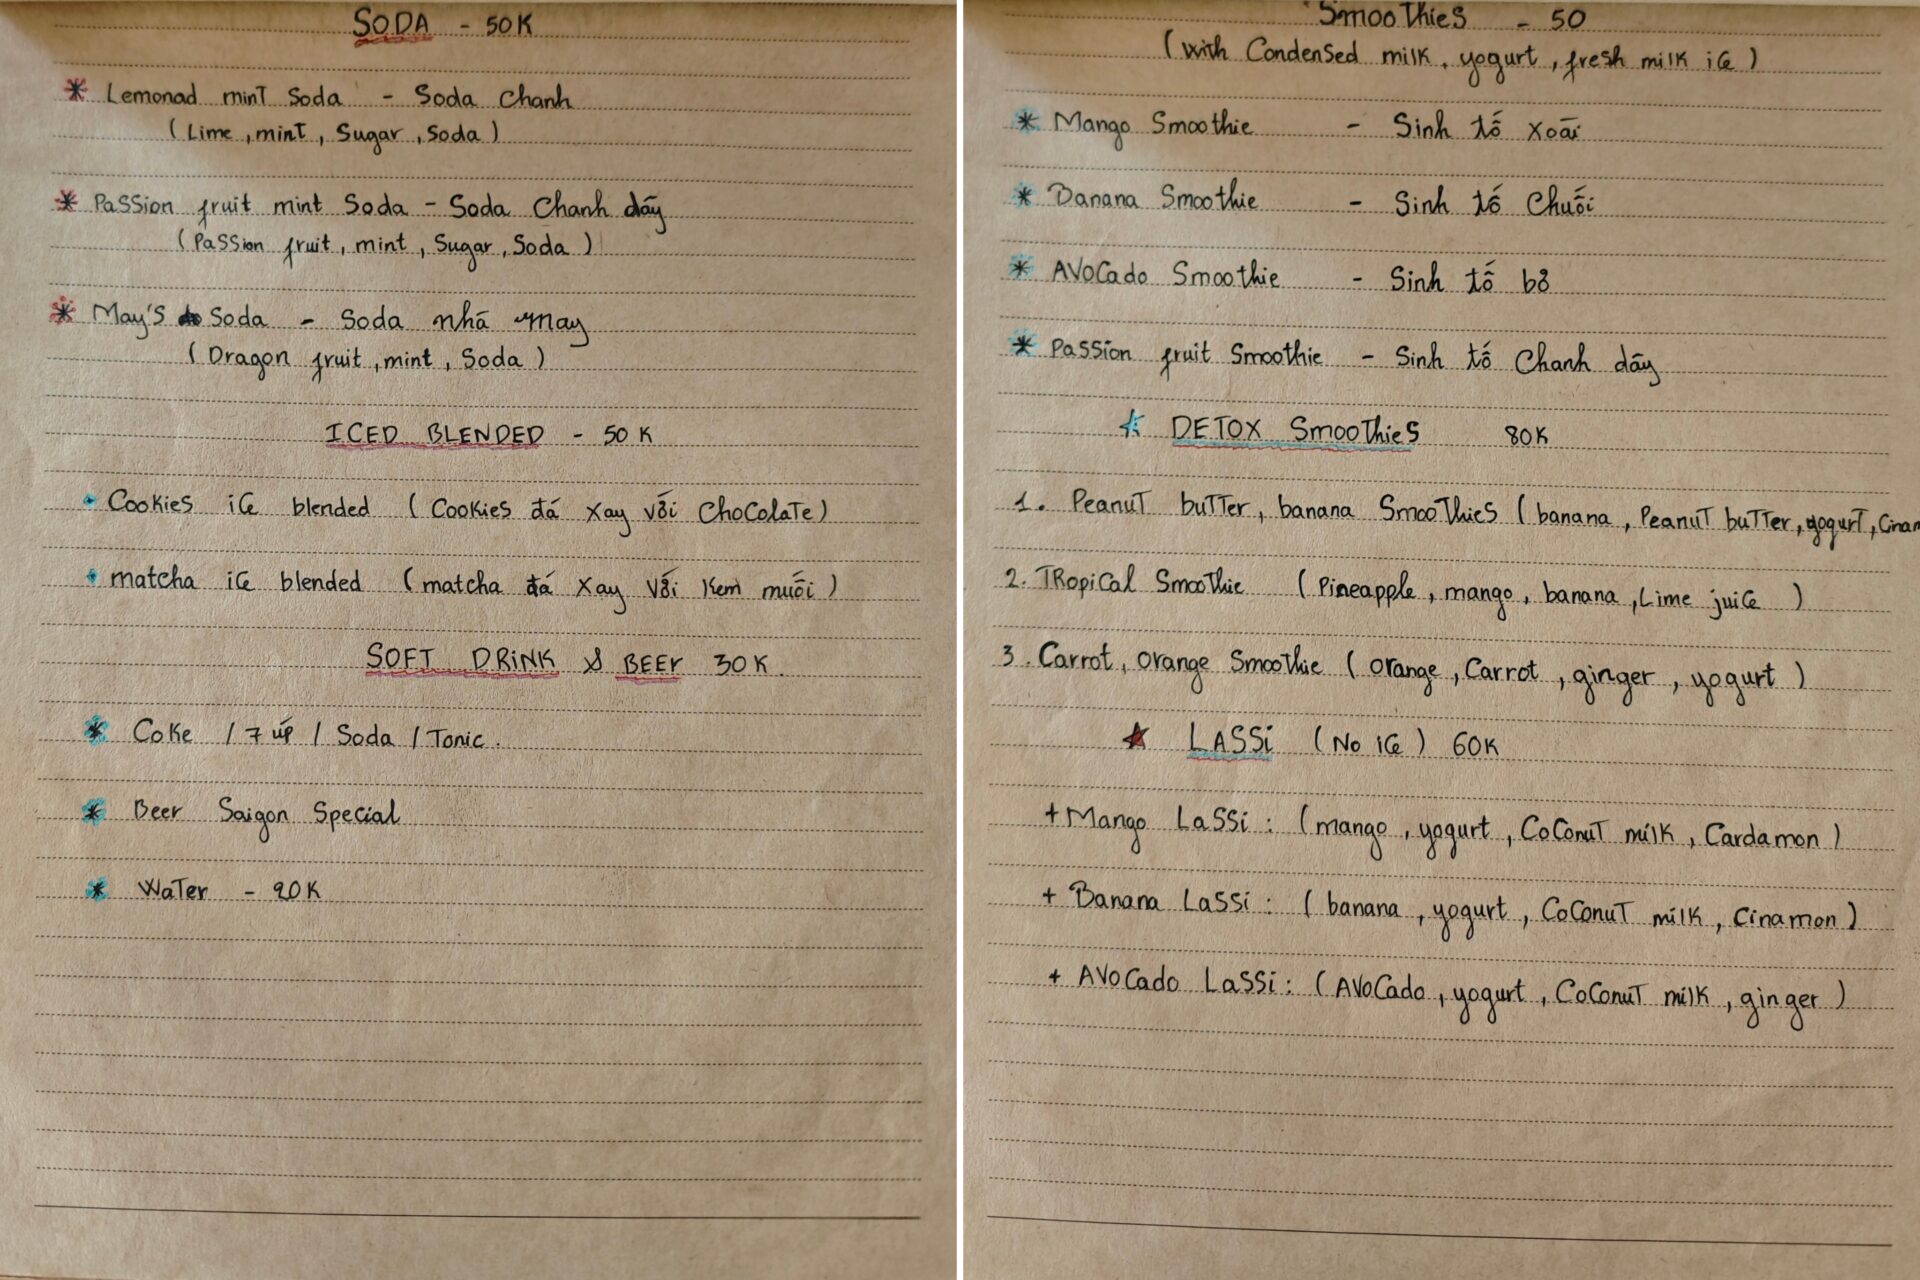 SODA - 50K
* Lemonad mint Soda - Soda Chanh
(Lime, mint, Sugar, Soda)
* Passion fruit mint Soda - Soda Chanh dây
(Passion fruit, mint, Sugar, Soda)
* May's Soda - Soda nhà may
(Dragon fruit, mint, Soda)
ICED BLENDED - 50K
• Cookies ice blended (Cookies đá xay với Chocolate)
• matcha ice blended (matcha đá xay với kem muối)
SOFT DRINK & BEER 30K.
* Coke / 7 úp / Soda / Tonic.
* Beer Saigon Special
* Water - 20K
Smoothies - 50
(with Condensed milk, yogurt, fresh milk ice)
* Mango Smoothie - Sinh tố xoài
* Banana Smoothie - Sinh tố Chuối
* Avocado Smoothie - Sinh tố bở
* Passion fruit Smoothie - Sinh tố Chanh dây
★ DETOX Smoothies 80K
1. Peanut butter, banana Smoothies (banana, Peanut butter, yogurt, Cinam
2. Tropical Smoothie (Pineapple, mango, banana, Lime juice)
3. Carrot, orange Smoothie (orange, Carrot, ginger, yogurt)
★ LASSi (No ice) 60K
+ Mango Lassi: (mango, yogurt, Coconut milk, Cardamon)
+ Banana Lassi: (banana, yogurt, Coconut milk, Cinamon)
+ Avocado Lassi: (Avocado, yogurt, Coconut milk, ginger)